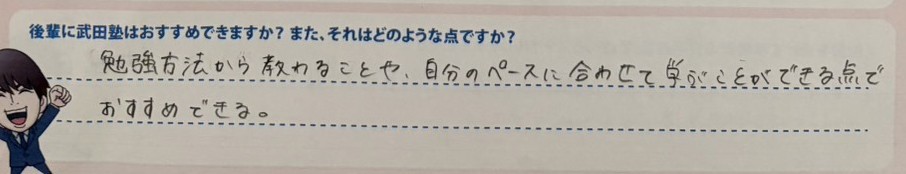 後輩に武田塾はおすすめできますか？また、それはどのような点ですか？
勉強方法から教わることや、自分のペースに合わせて学ぶことができる点で
おすすめできる。